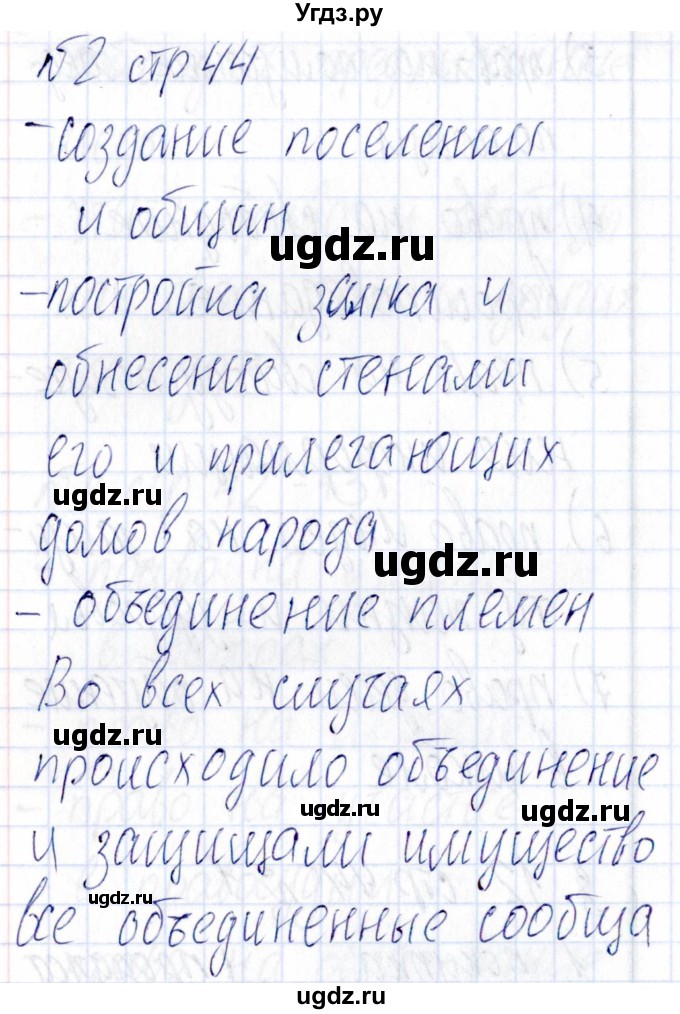 Угдз.ру
№2 стр 44
- создание поселении
и общин
ugdz.ru
- постройка замка и
обнесение стенами
его и прилегающих
ugdz.ru
домов народа
ugdz.ru
- объединение племен
Во всех случаях
ugdz.ru
происходило объединение
ugdz.ru ugdz.ru
и защищали имущество
ugdz.ru
все объединенные сообща
ugdz.ru